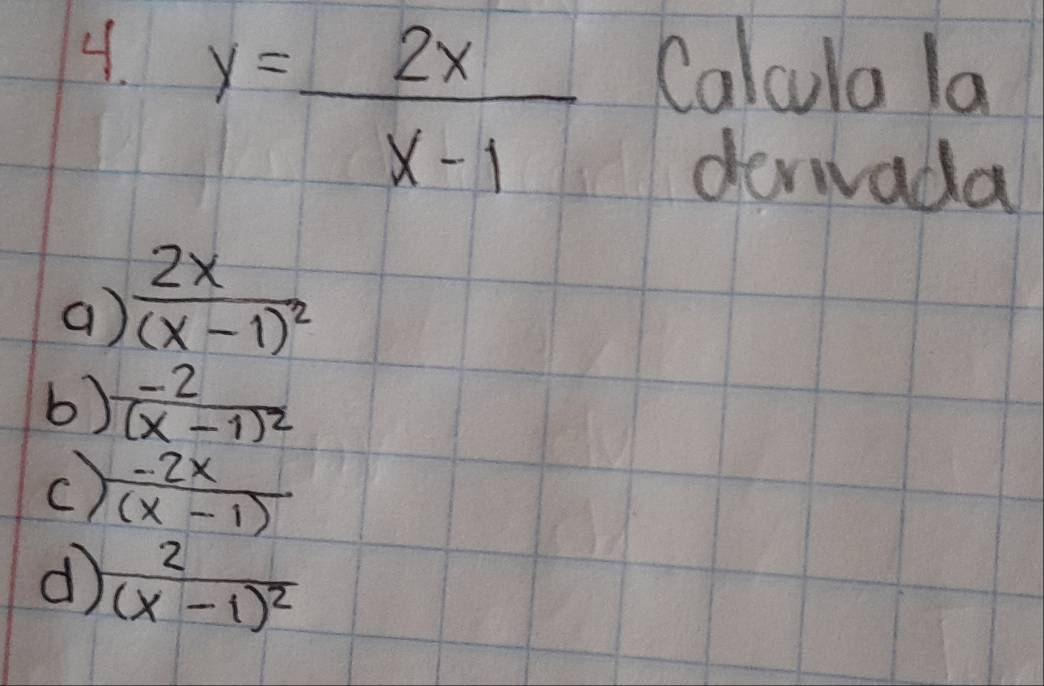 4. y = 2x / x - 1 Calcula la
derivada
a) 2x / (x - 1)²
b) -2 / (x - 1)²
c) -2x / (x - 1)
d) 2 / (x - 1)²